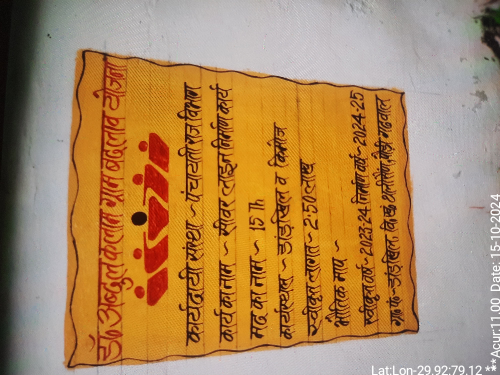 डॉ० अब्दुल कलाम ग्राम बदलाव योजना
कार्यदायी संस्था ~ पंचायती राज विभाग
कार्य का नाम ~ सीवर लाइन निर्माण कार्य
मद का नाम ~ 15 th
कार्यस्थल ~ डांडाखिल व किमोज
स्वीकृत लागत ~ 2.50 लाख
भौतिक माप ~
स्वीकृत वर्ष ~ 2023-24 निर्माण वर्ष ~ 2024-25
ग्रा० पं० - डांडाखिल, वि०ख० थलीसैंण, पौड़ी गढ़वाल
Lat:Lon-29.92:79.12 **Acur:11.00 Date: 15-10-2024